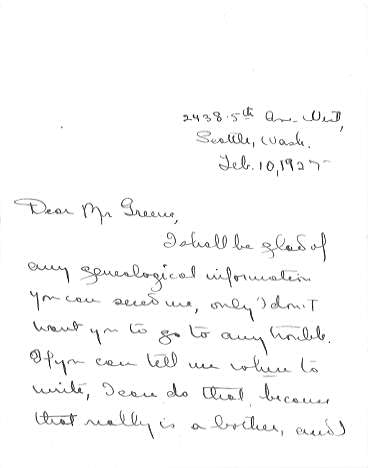 2438-5th Ave. West,
Seattle, Wash.
Feb. 10, 1927
Dear Mr Greene,
I shall be glad of
any genealogical information
you can send me, only I don't
want you to go to any trouble.
If you can tell me where to
write, I can do that, because
that really is a bother, and I